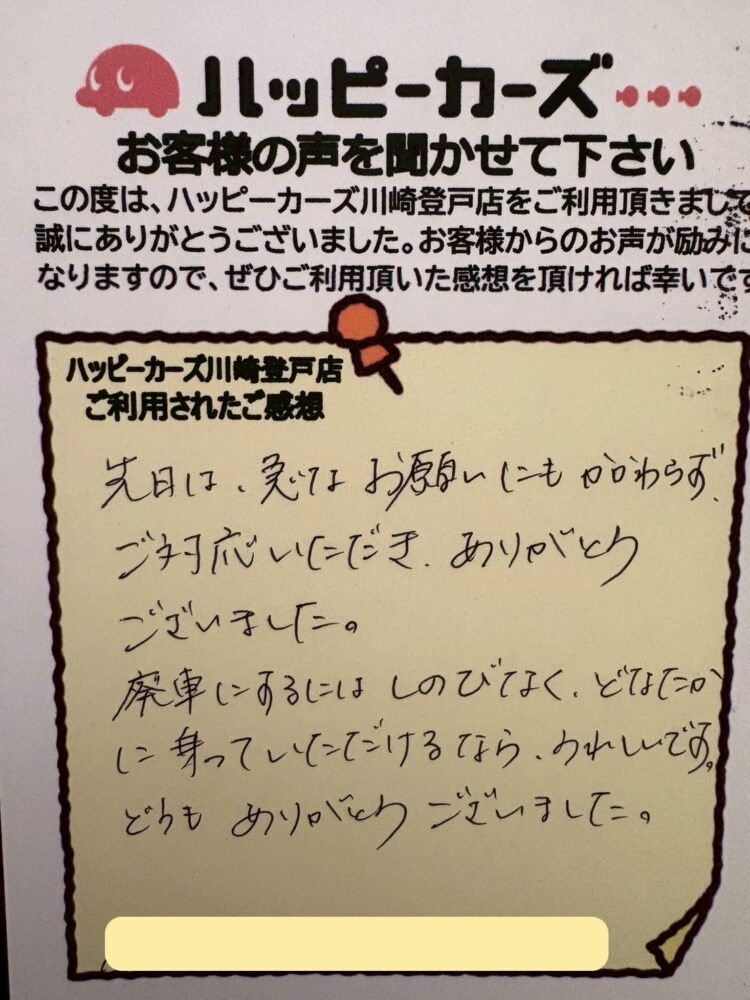 ハッピーカーズ
お客様の声を聞かせて下さい
この度は、ハッピーカーズ川崎登戸店をご利用頂きまして
誠にありがとうございました。お客様からのお声が励みに
なりますので、ぜひご利用頂いた感想を頂ければ幸いです
ハッピーカーズ川崎登戸店
ご利用されたご感想
先日は、急なお願いにもかかわらず、
ご対応いただき、ありがとう
ございました。
廃車にするにはしのびなく、どなたか
に乗っていただけるなら、うれしいです。
どうもありがとうございました。